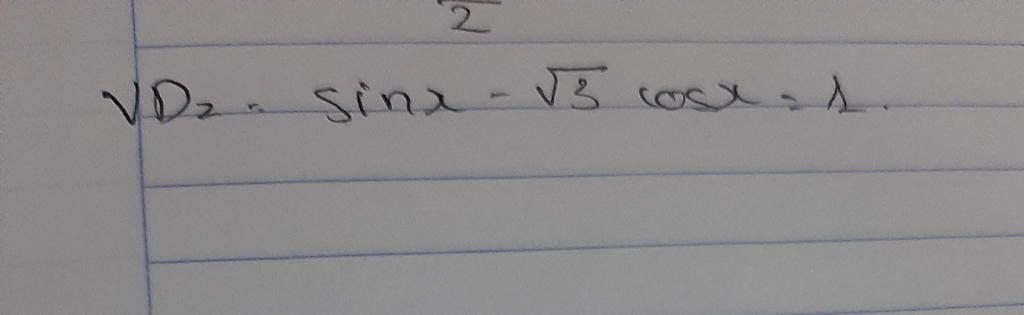 2
VD2. sinx - √3 cosx = 1.